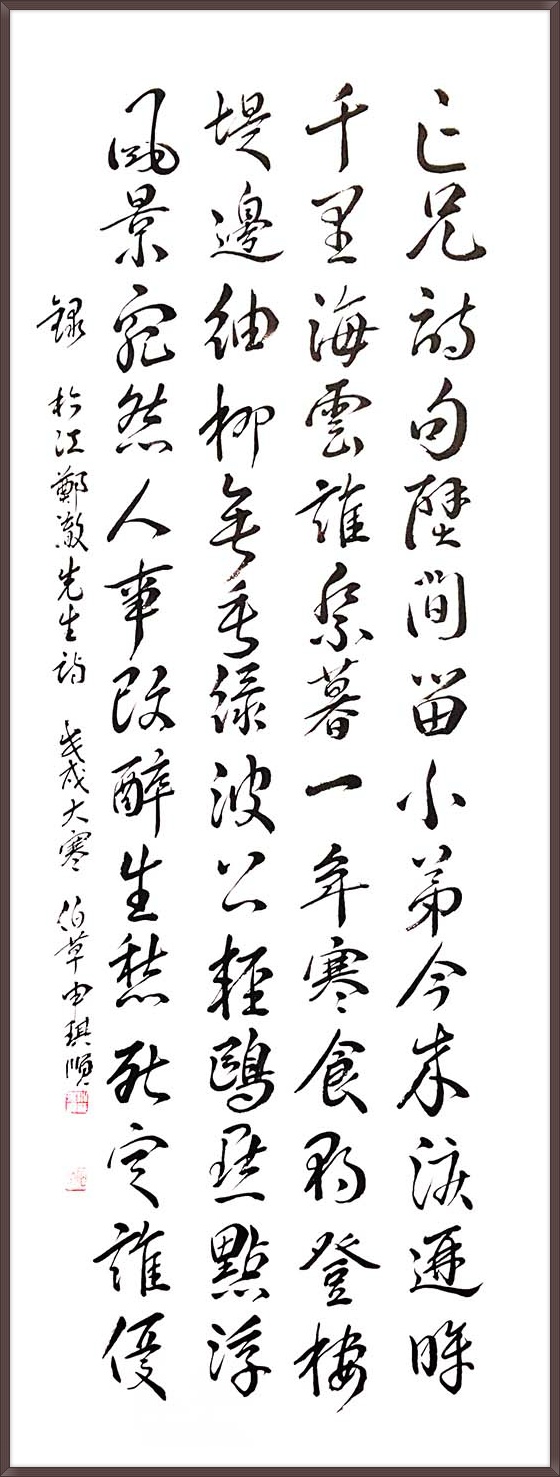 亡兄詩句壁間留小弟今來淚迸眸
千里海雲誰祭墓一年寒食獨登樓
堤邊細柳垂垂綠波上輕鷗點點浮
風景宛然人事改醉生愁死定誰優
錄 松江鄭澈先生詩 戊戌大寒 伯草 琪順